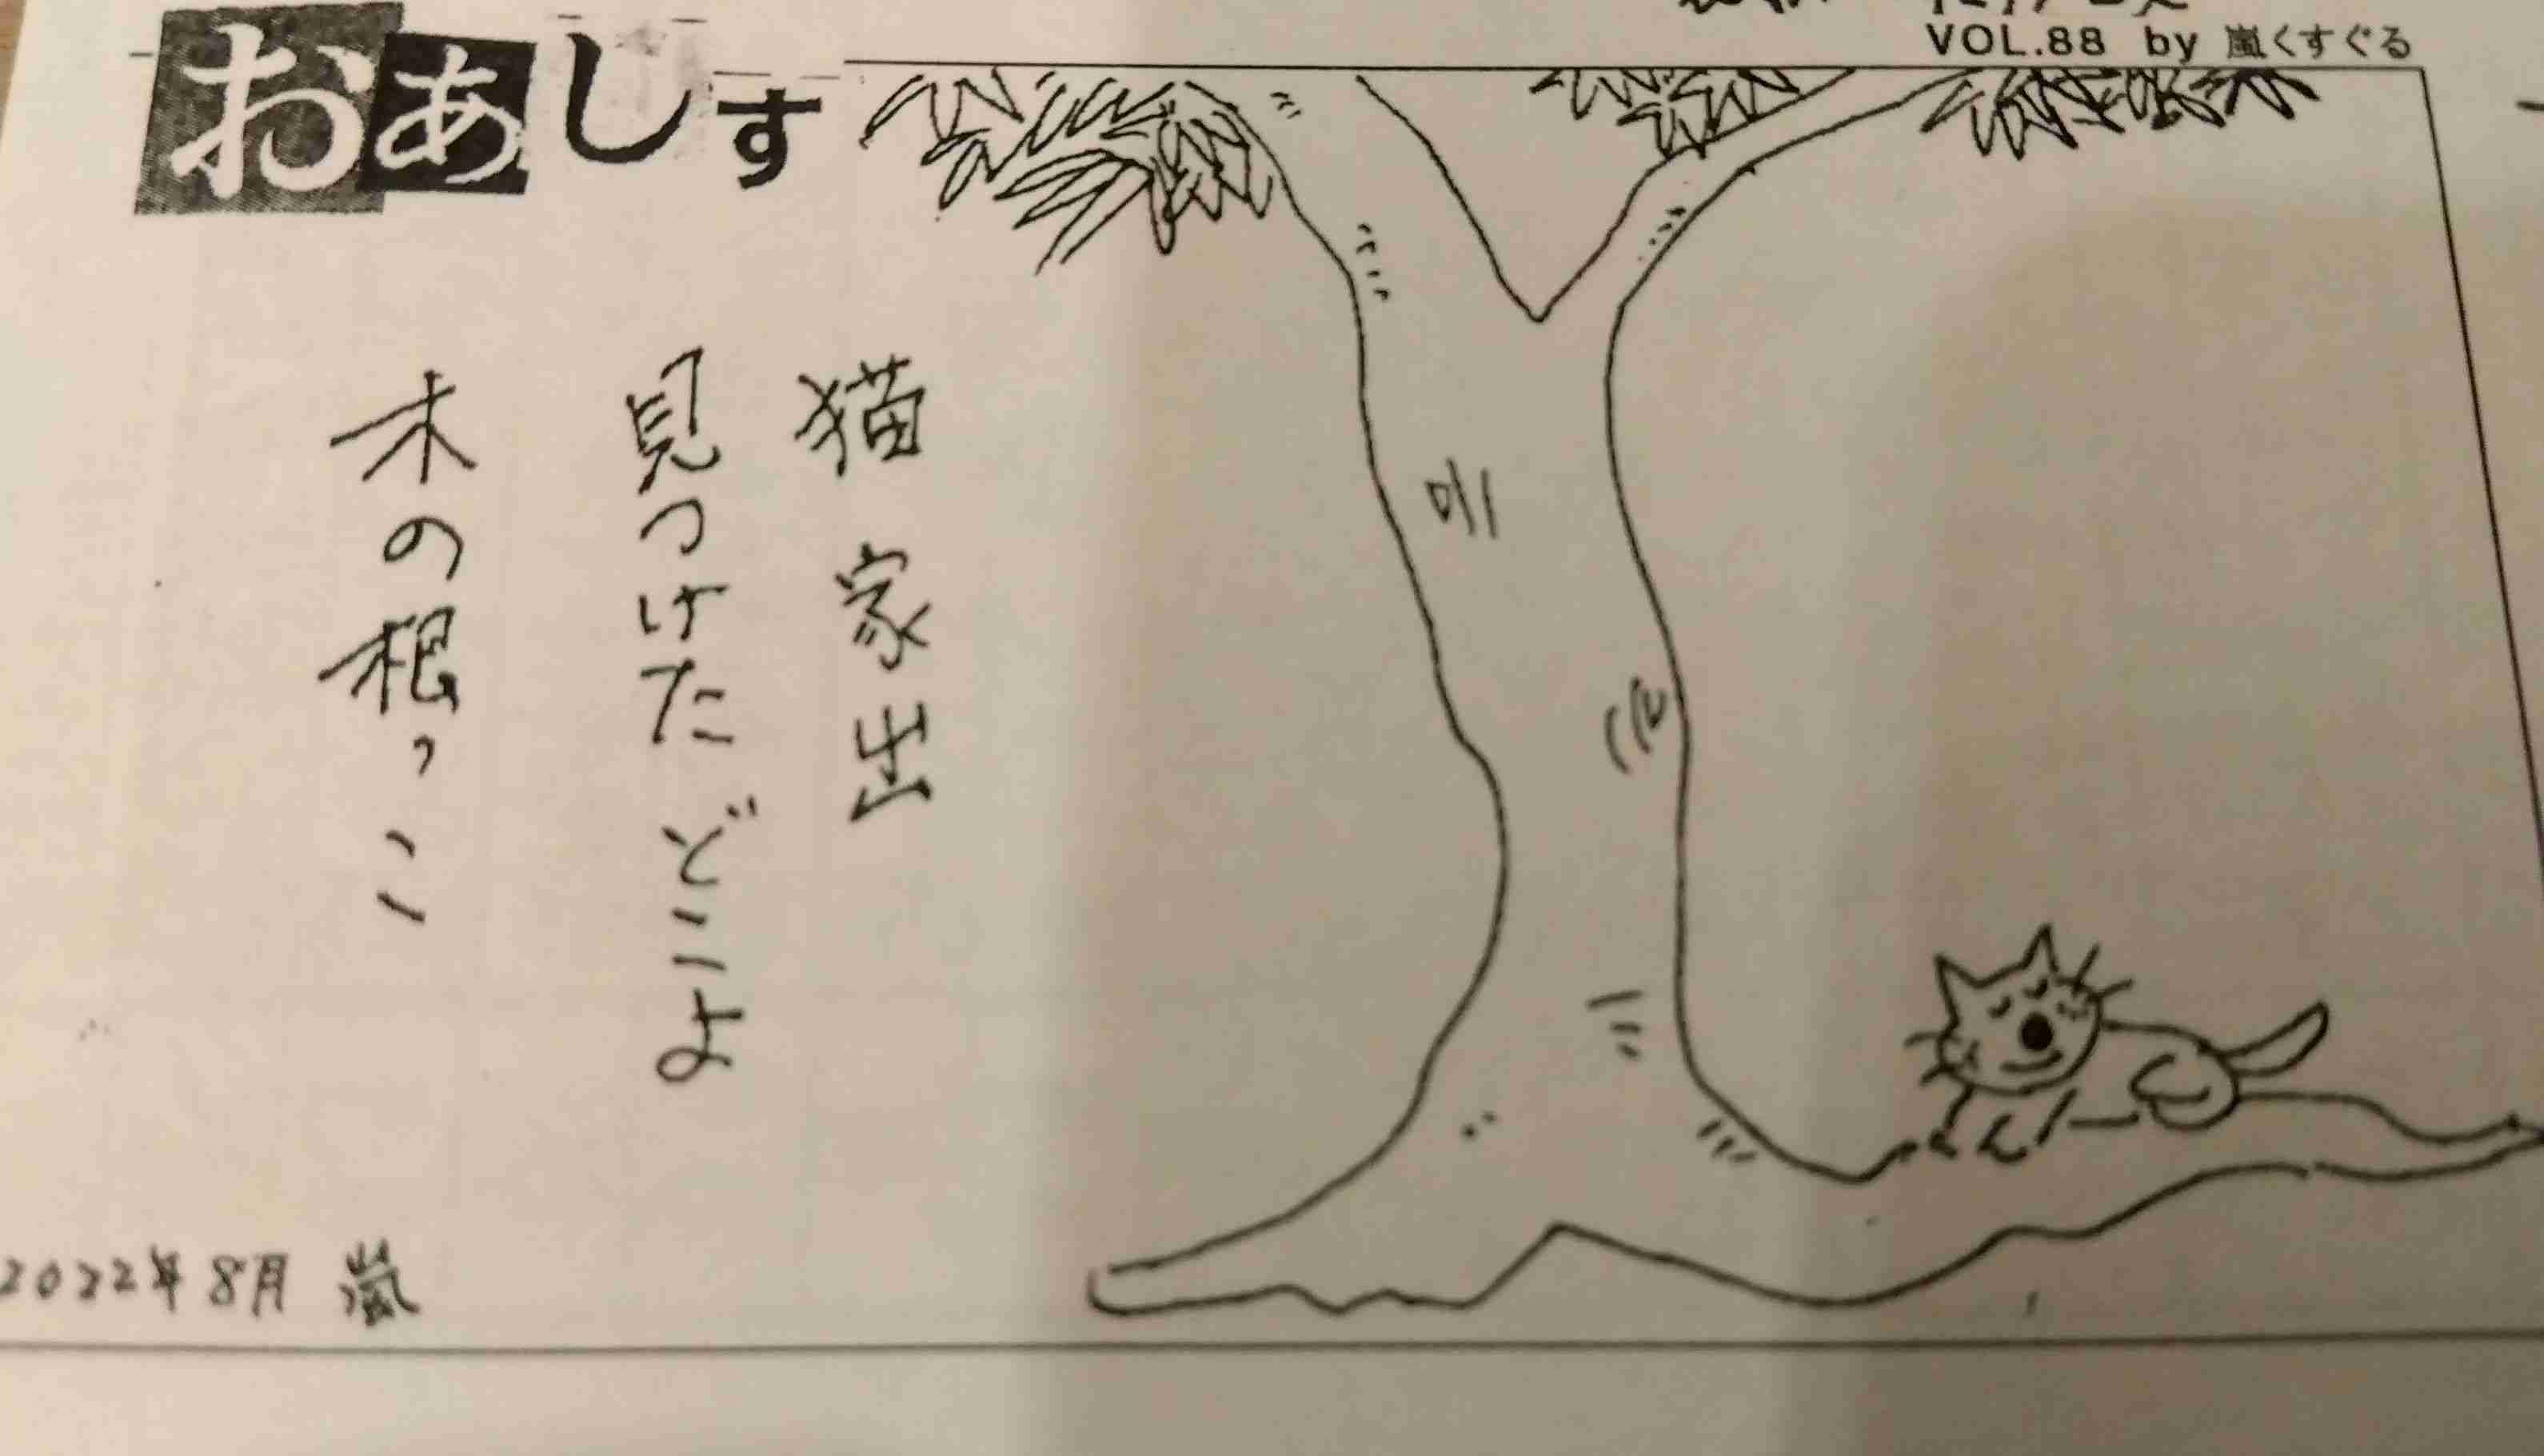 VOL.88 by 嵐くすぐる
おあしす
猫家出
見つけたどこよ
木の根っこ
2022年8月 嵐